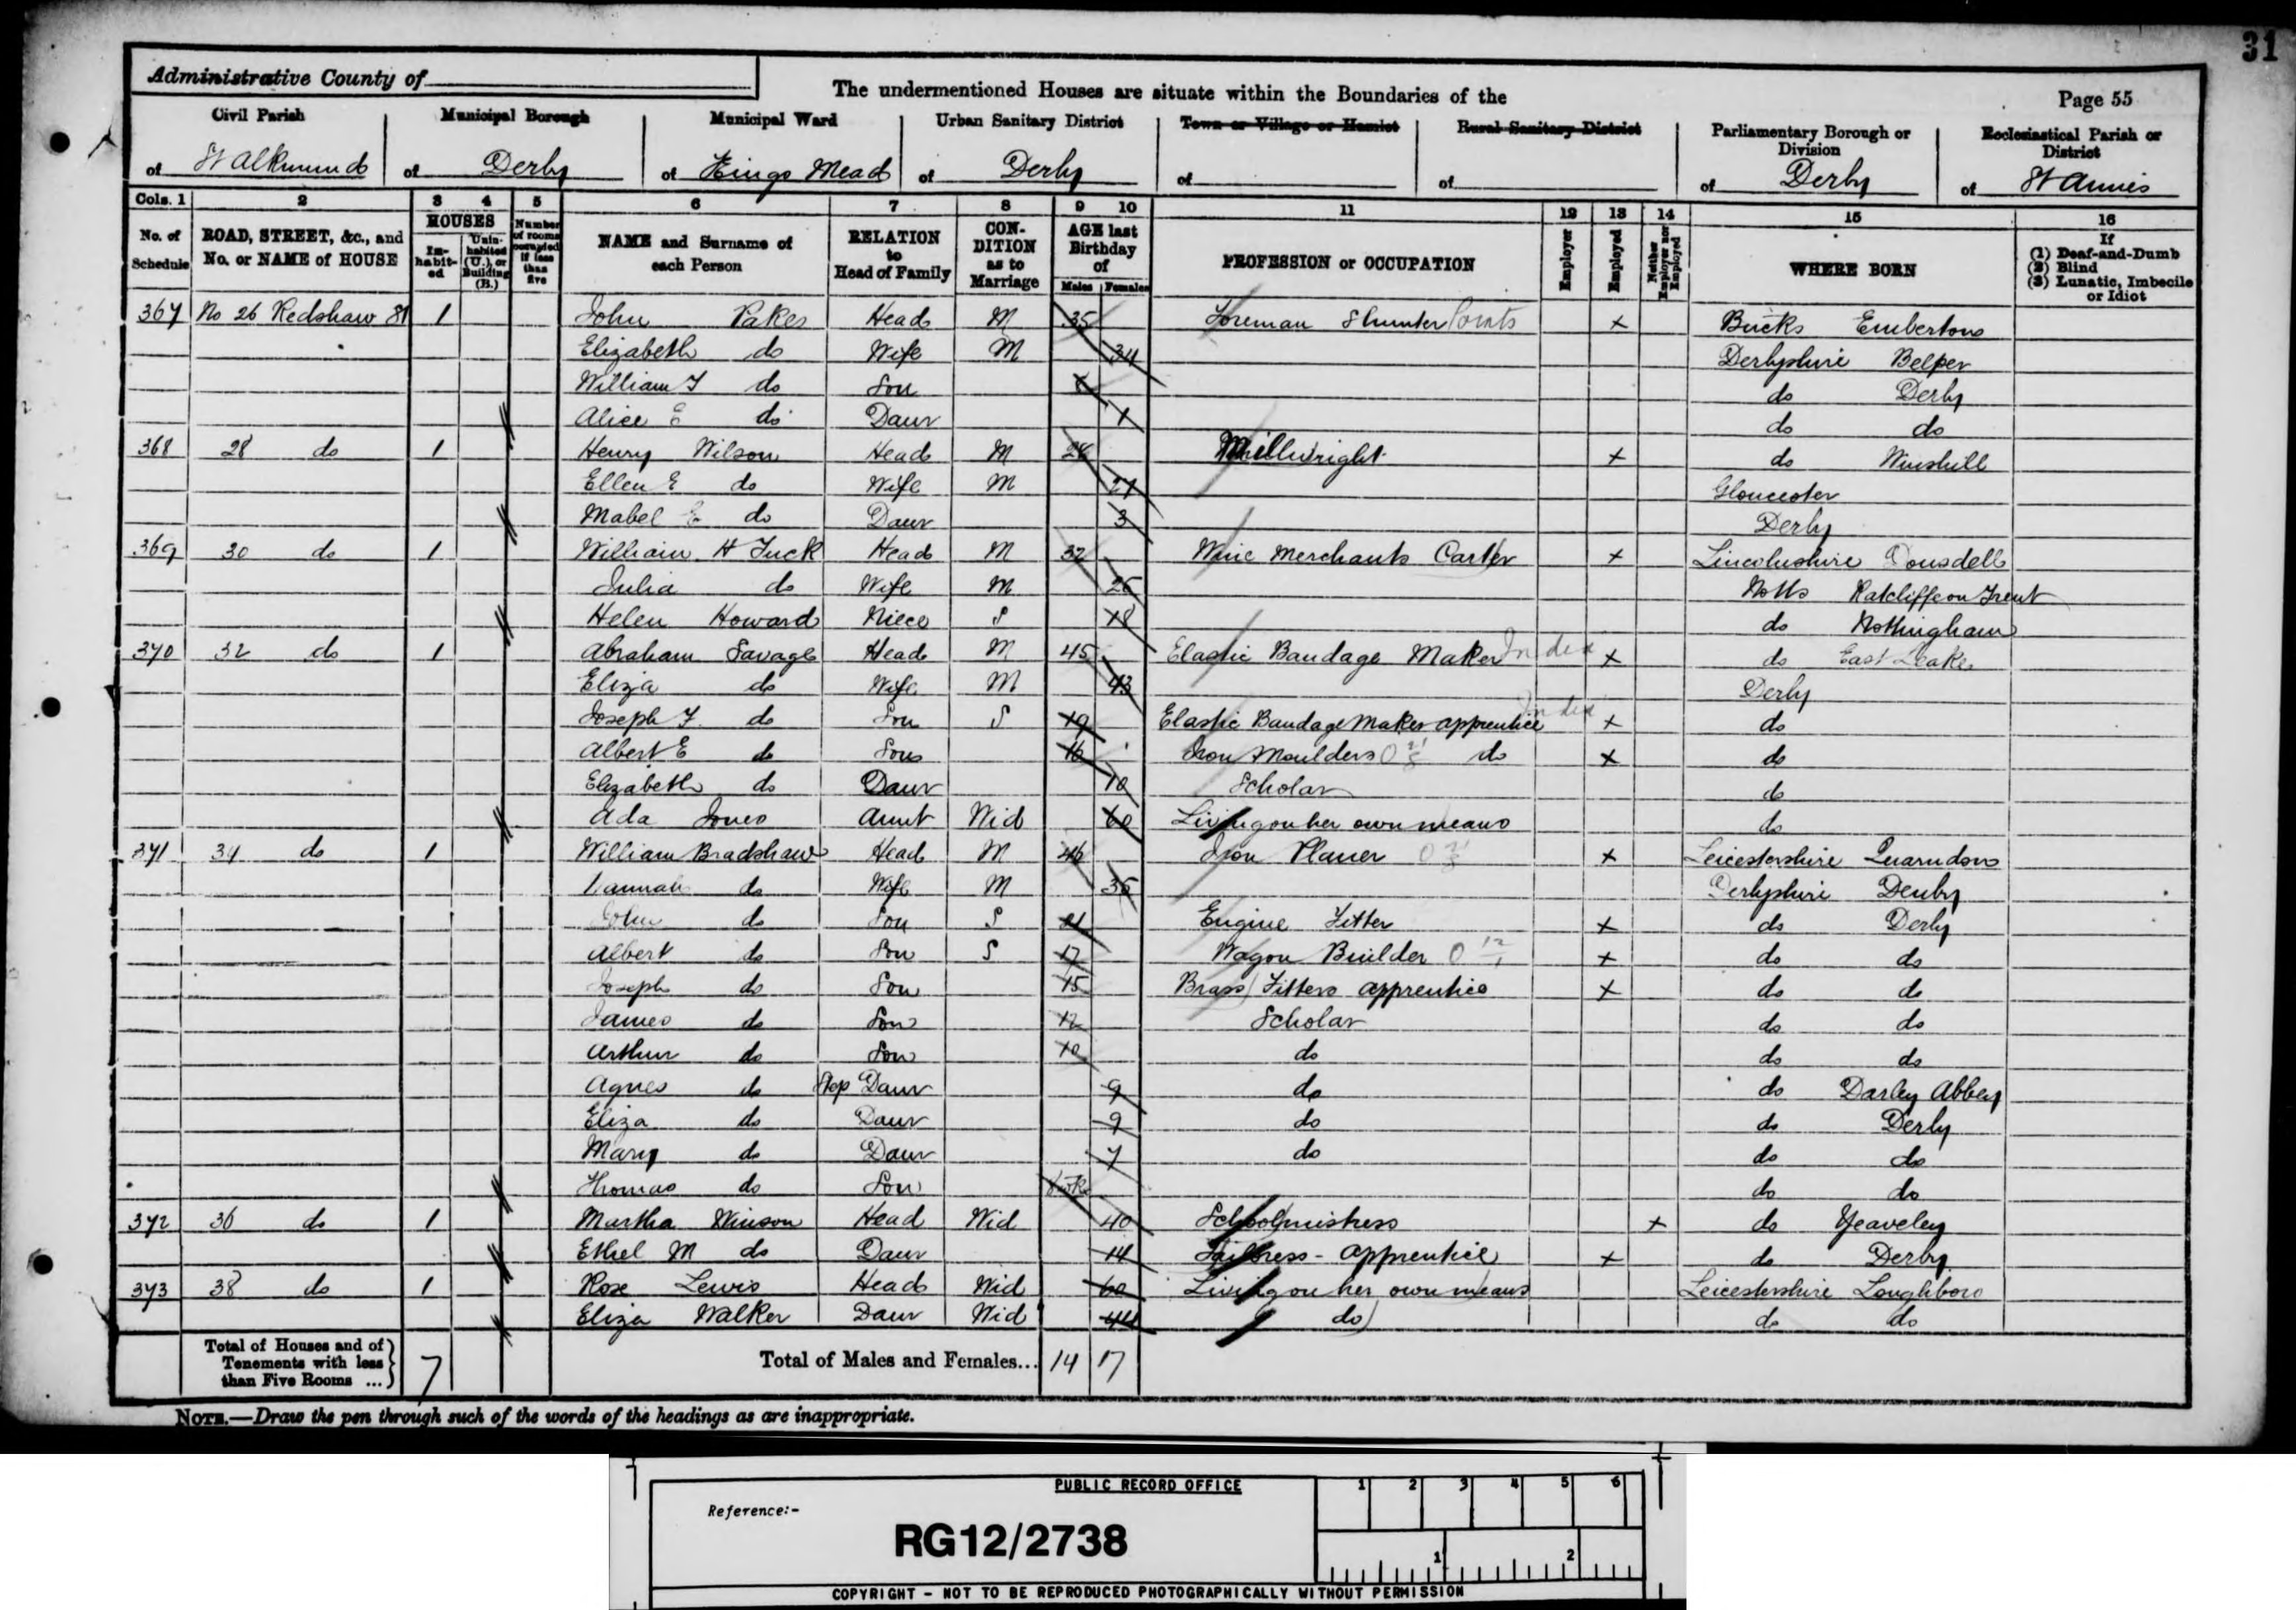 31
Administrative County of
The undermentioned Houses are situate within the Boundaries of the
Page 55
Civil Parish
Municipal Borough
Municipal Ward
Urban Sanitary District
Town or Village or Hamlet
Rural Sanitary District
Parliamentary Borough or Division
Ecclesiastical Parish or District
of St Alkmunds of Derby of Kings Mead of Derby of of of Derby of St Annes
Cols. 1 2 3 4 5 6 7 8 9 10 11 12 13 14 15 16
No. of Schedule
ROAD, STREET, &c., and No. or NAME of HOUSE
HOUSES
In-habit-ed
Unin-habited (U.), or Building (B.)
Number of rooms occupied if less than five
NAME and Surname of each Person
RELATION to Head of Family
CON-DITION as to Marriage
AGE last Birthday of
Males Females
PROFESSION or OCCUPATION
Employer
Employed
Neither Employer nor Employed
WHERE BORN
If (1) Deaf-and-Dumb (2) Blind (3) Lunatic, Imbecile or Idiot
367 No 26 Redshaw St 1 John Pakes Head M 35 Foreman Shunter Points x Bucks Emberton
Elizabeth do Wife M 34 Derbyshire Belper
William T do Son do Derby
Alice E do Daur 1 do do
368 28 do 1 Henry Wilson Head M 28 Millwright x do Winshill
Ellen E do Wife M 27 Gloucester
Mabel E do Daur 3 Derby
369 30 do 1 William H Tuck Head M 32 Wine Merchants Carter x Lincolnshire
Julia do Wife M 26 Notts Ratcliffe on Trent
Helen Howard Niece S 18 do Nottingham
370 32 do 1 Abraham Savage Head M 45 Elastic Bandage Maker Index x do East Leake
Eliza do Wife M 43 Derby
Joseph T do Son S 19 Elastic Bandage Maker apprentice Index x do
Albert E do Son 16 Iron Moulders do x do
Elizabeth do Daur 10 Scholar do
Ada Jones Aunt Wid 60 Living on her own means do
371 34 do 1 William Bradshaw Head M 46 Iron Planer x Leicestershire Quarndon
Hannah do Wife M 36 Derbyshire Denby
John do Son S 21 Engine Fitter x do Derby
Albert do Son S 17 Wagon Builder x do do
Joseph do Son 15 Brass Fitters apprentice x do do
James do Son 12 Scholar do do
Arthur do Son 10 do do do
Agnes do Step Daur 9 do do Darley Abbey
Eliza do Daur 9 do do Derby
Mary do Daur 7 do do do
Thomas do Son do do
372 36 do 1 Martha Winson Head Wid 40 Schoolmistress x do Yeaveley
Ethel M do Daur 14 Tailoress - apprentice x do Derby
373 38 do 1 Rose Lewis Head Wid 60 Living on her own means Leicestershire Loughboro
Eliza Walker Daur Wid 44 do do do
Total of Houses and of Tenements with less than Five Rooms ... 7
Total of Males and Females... 14 17
NOTE.—Draw the pen through such of the words of the headings as are inappropriate.
PUBLIC RECORD OFFICE
Reference:-
RG12/2738
1 2 3 4 5 6
1 2
COPYRIGHT - NOT TO BE REPRODUCED PHOTOGRAPHICALLY WITHOUT PERMISSION